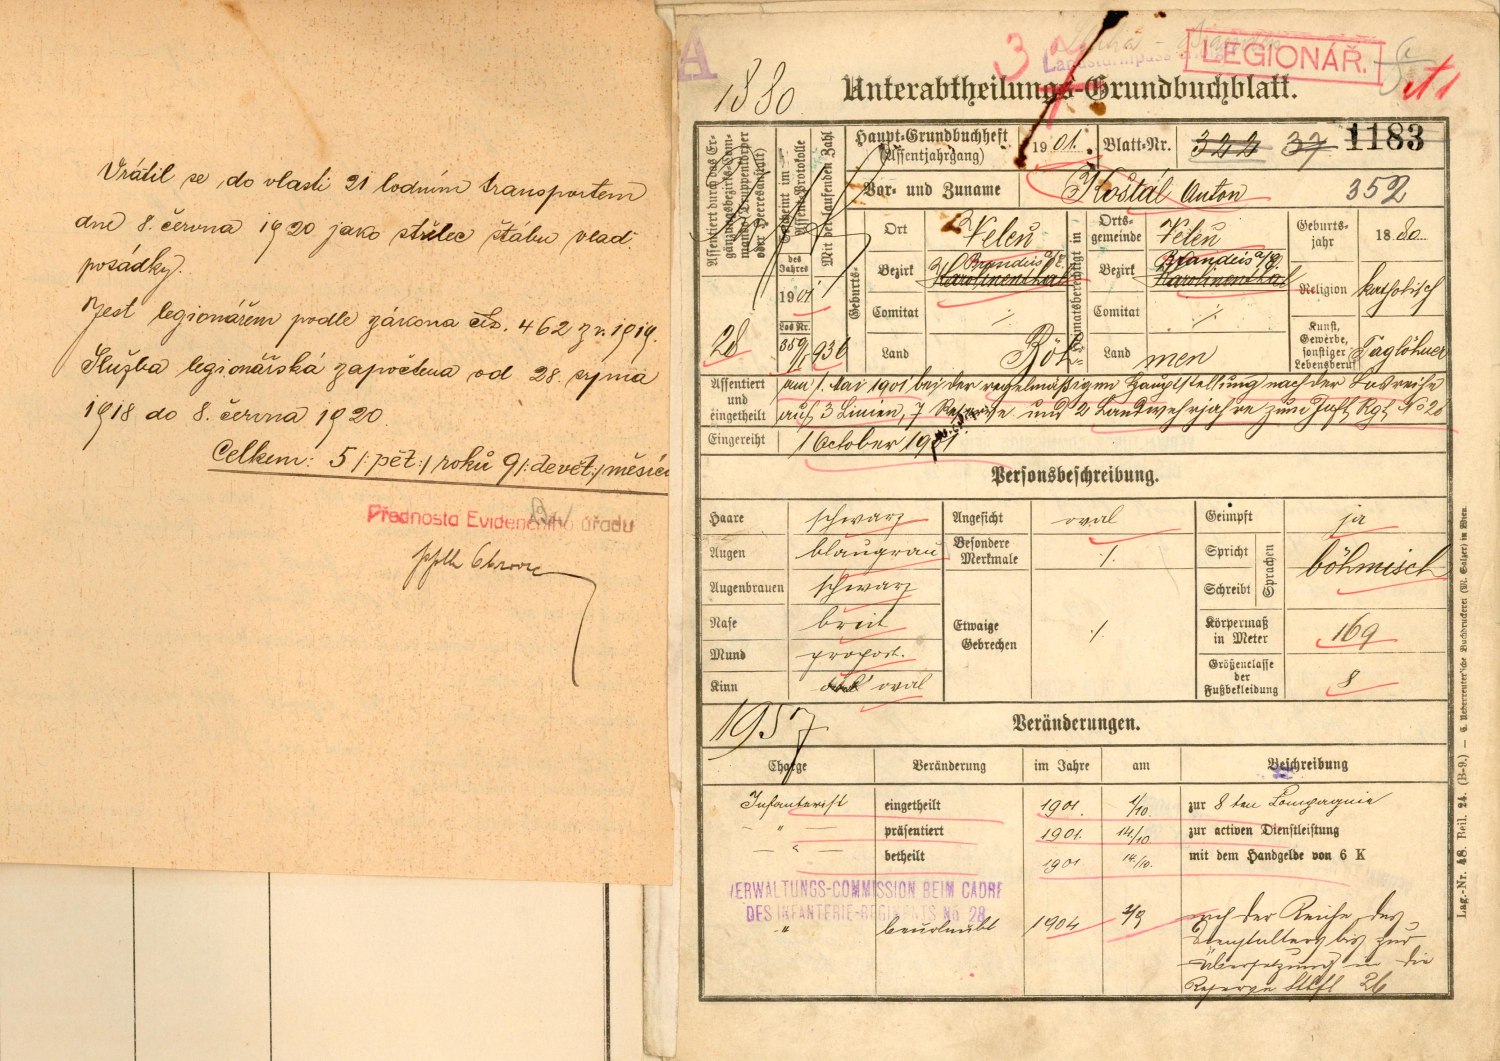 Vrátil se do vlasti 21 lodním transportem
dne 8. června 1920 jako střelec štábu vlad.
posádky.
Jest legionářem podle zákona čís. 462 z r. 1919.
Služba legionářská započtena od 28. srpna
1918 do 8. června 1920.
Celkem: 5 /:pět:/ roků 9 /:devět:/ měsíců
Přednosta Evidenčního úřadu
A
1880
3
LEGIONÁŘ.
Unterabtheilungs-Grundbuchblatt.
Assentiert durch das Ergänzungsbezirks-Commando (Truppenkörper oder Heeresanstalt)
28
des Jahres
1901
Los Nr.
Mit der laufenden Zahl
936
Haupt-Grundbuchheft
(Assentjahrgang)
1901.
Blatt-Nr.
322 37 1183
Vor- und Zuname
Košťál Anton
352
Geburts-
Ort
Veleň
Bezirk
Brandeis a/E.
Karolinenthal
Comitat
/.
Land
Böh
Heimatsberechtigt in
Ortsgemeinde
Veleň
Bezirk
Brandeis a/E
Karolinenthal
Comitat
/.
Land
men
Geburtsjahr
1880.
Religion
katholisch
Kunst, Gewerbe, sonstiger Lebensberuf
Taglöhner
Assentiert und eingetheilt
am 1. Mai 1901 bei der regelmäßigen Hauptstellung nach der Losreihe
auf 3 Linien, 7 Reserve und 2 Landwehrjahre zum Inft Rgt No 28
Eingereiht
1 October 1901
Personsbeschreibung.
Haare
schwarz
Augen
blaugrau
Augenbrauen
schwarz
Nase
breit
Mund
proport.
Kinn
oval
Angesicht
oval
Besondere Merkmale
/.
Etwaige Gebrechen
/.
Geimpft
ja
Spricht
Schreibt
Sprachen
böhmisch
Körpermaß in Meter
169
Größenclasse der Fußbekleidung
8
1957
Veränderungen.
Charge
Veränderung
im Jahre
am
Beschreibung
Infanterist eingetheilt 1901. 1/10. zur 8ten Compagnie
— " — präsentiert 1901. 14/10. zur activen Dienstleistung
— " — betheilt 1901 14/10. mit dem Handgelde von 6 K
VERWALTUNGS-COMMISSION BEIM CADRE
DES INFANTERIE-REGIMENTS No 28
" beurlaubt 1904 nach der Reihe des
bis zur
Übersetzung in die
Reserve
Lag.-Nr. 48. Beil. 24. (B-9.) — C. Ueberreuter'sche Buchdruckerei (M. Salzer) in Wien.